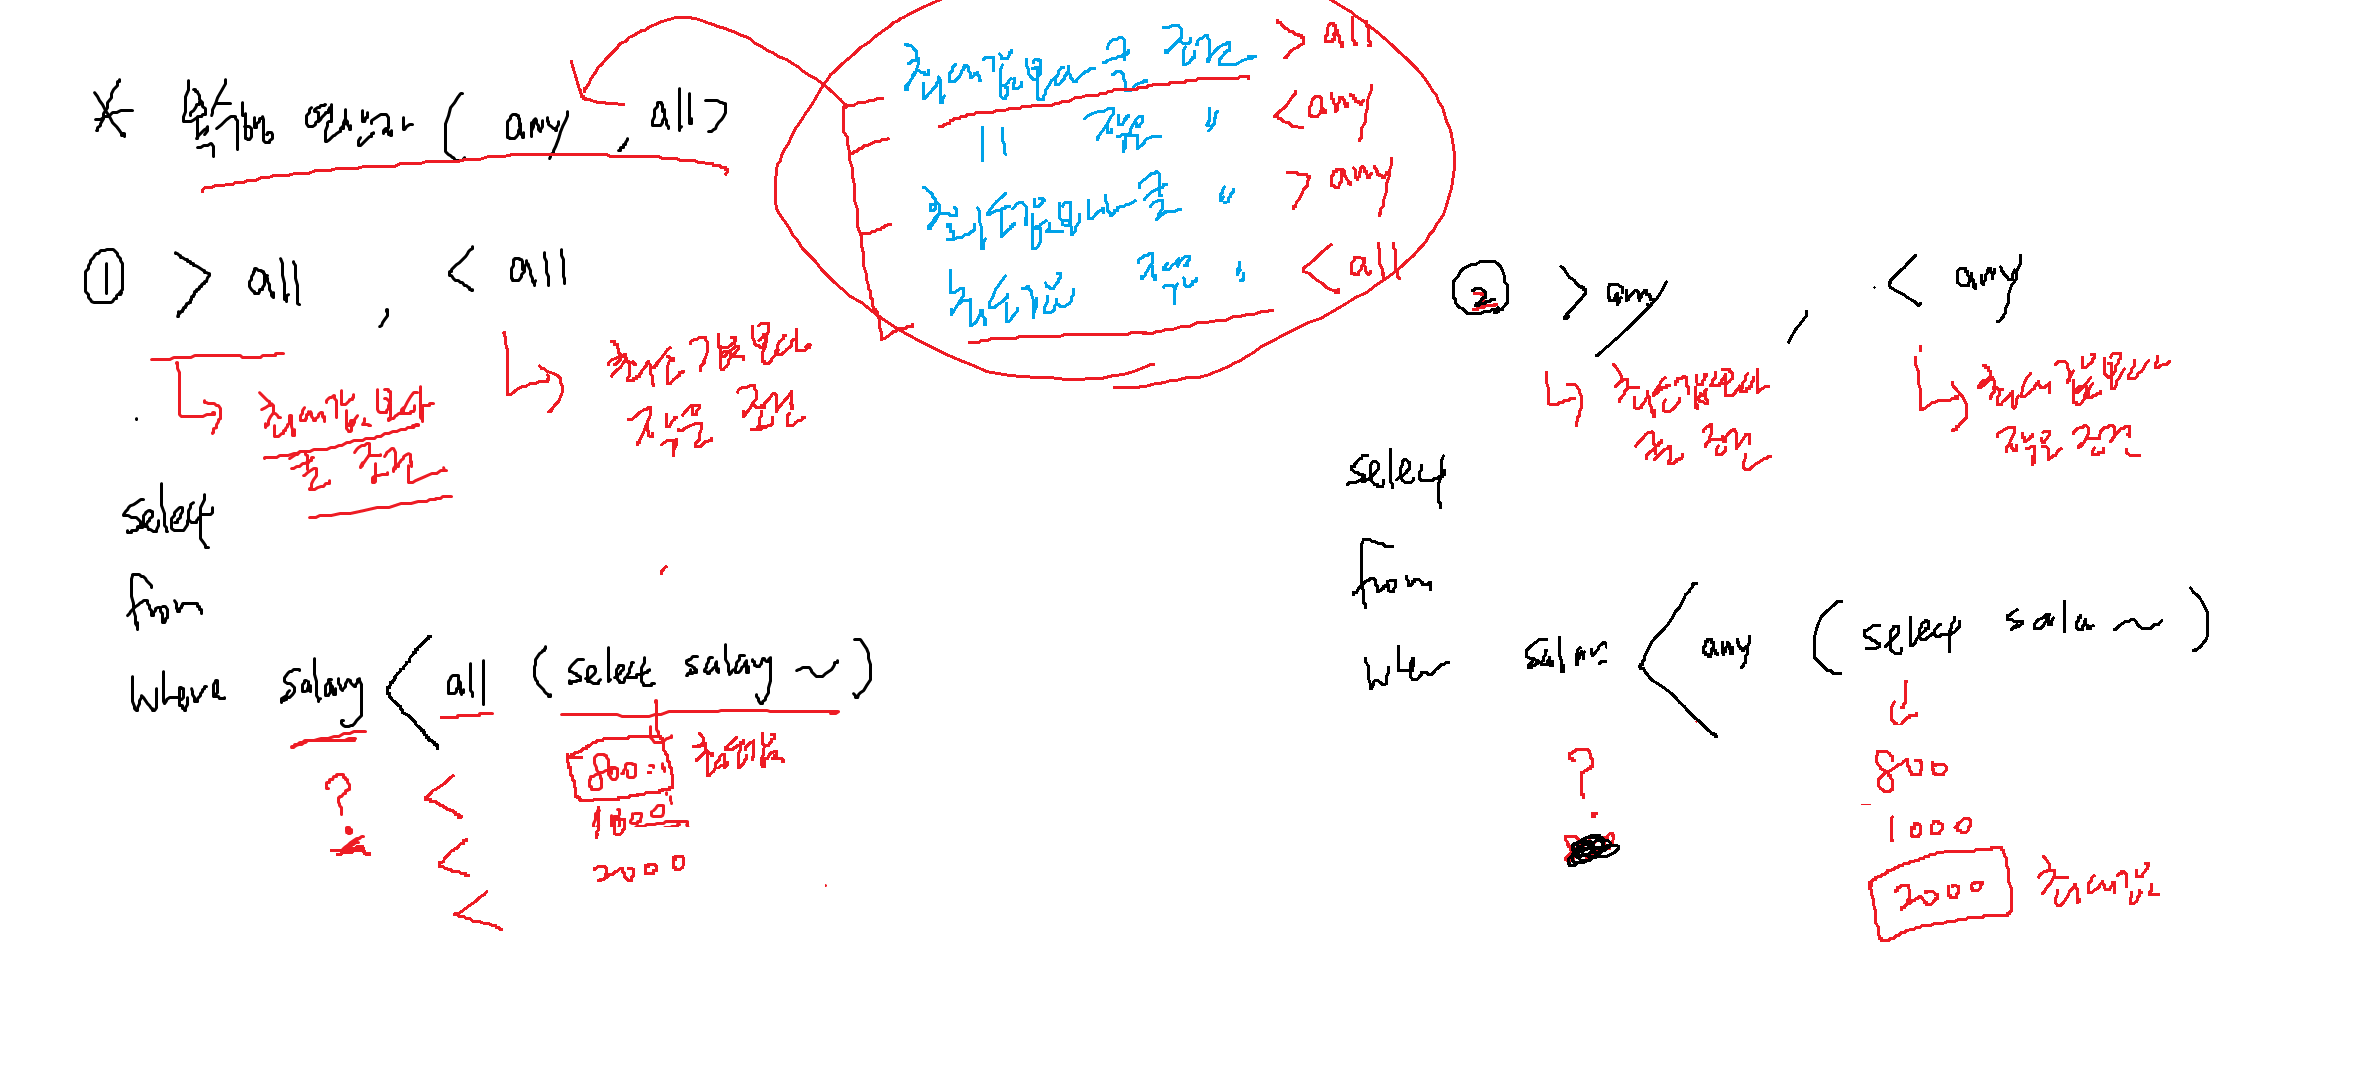 * 복수행 연산자 ( any , all )
최대값보다 큰 조건 > all
〃 작은 〃 < any
최소값보다 큰 〃 > any
최소값 작은 〃 < all
① > all , < all
최대값보다
큰 조건
최소값보다
작은 조건
select
from
where salary < all ( select salary ~ )
? < 800 최소값
< 1800
< 2000
② > any , < any
최소값보다
큰 조건
최대값보다
작은 조건
select
from
wher salar < any ( select sala ~ )
? 800
1000
2000 최대값